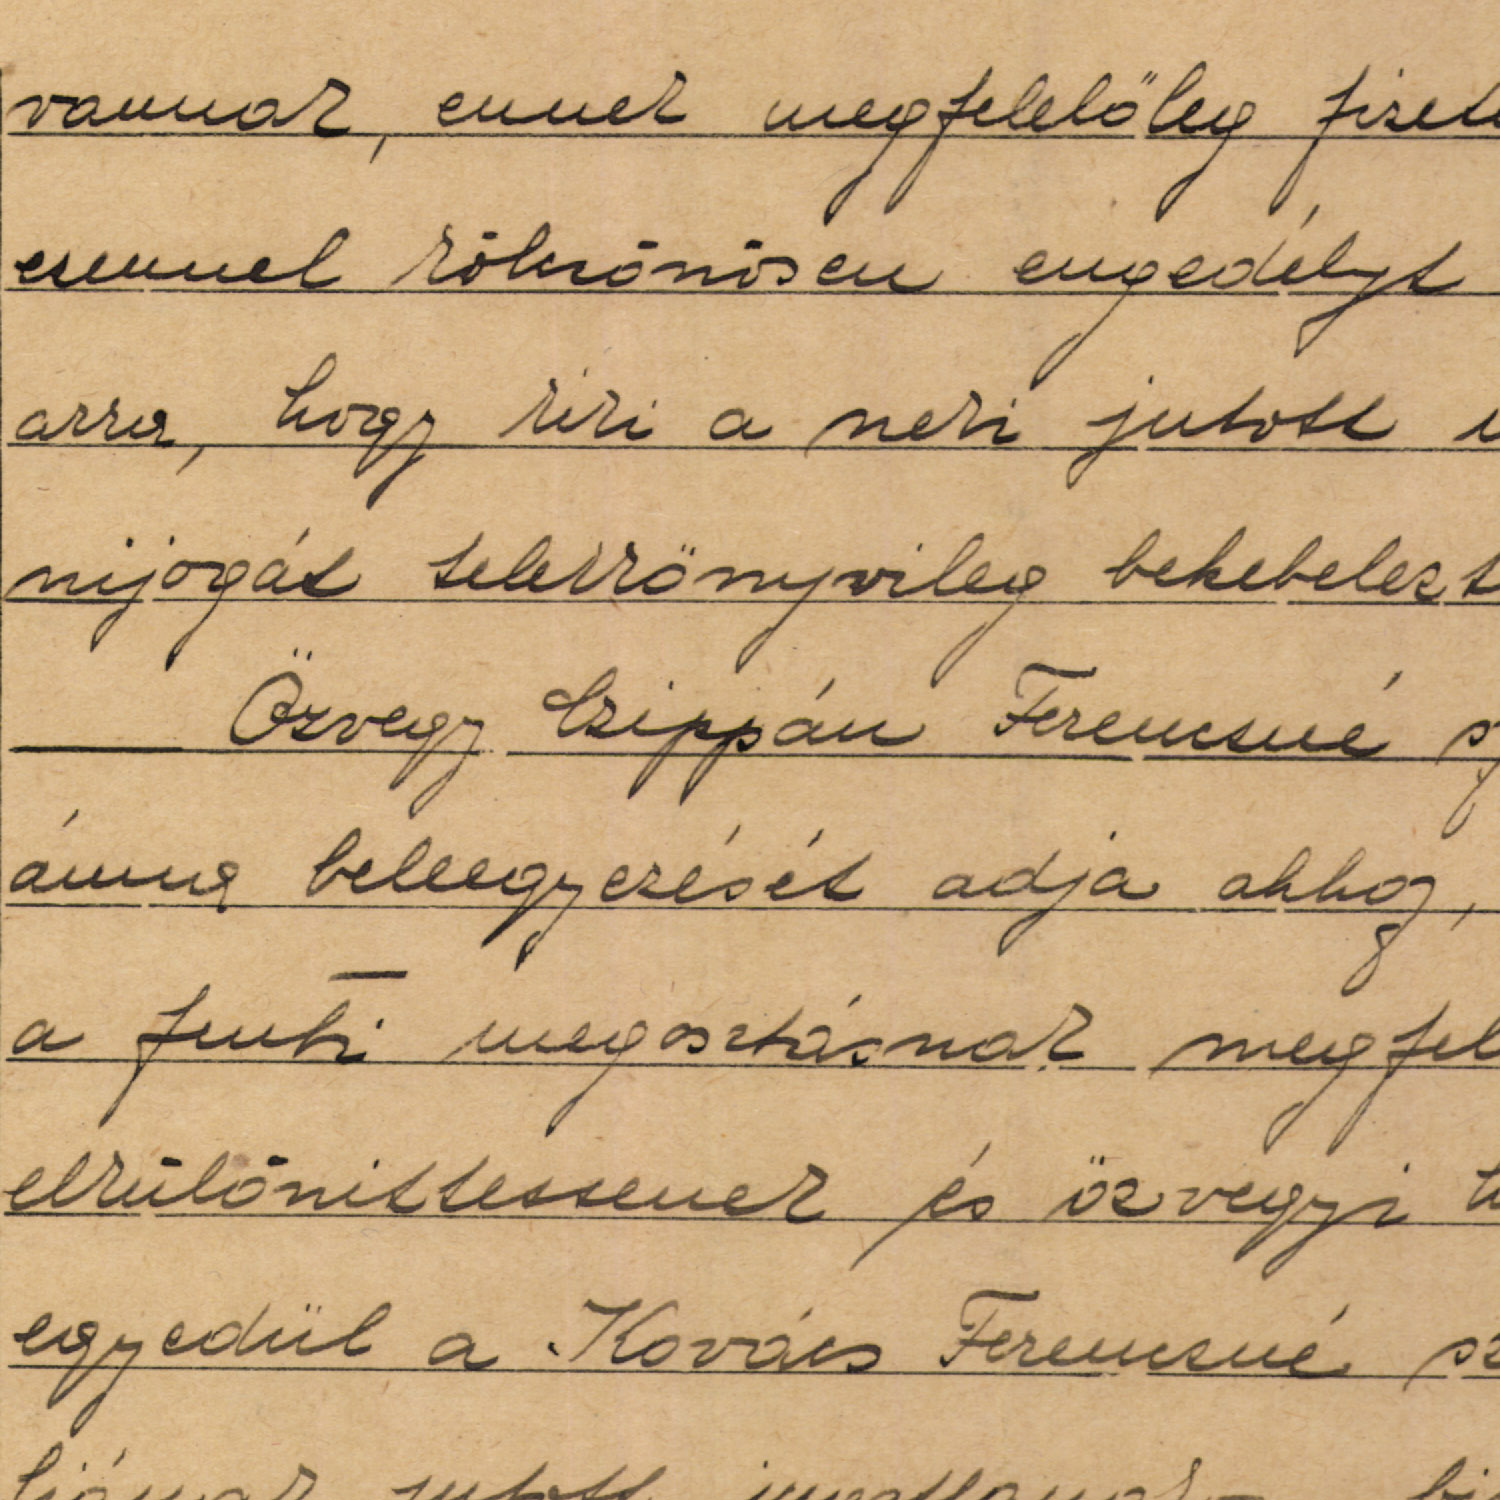 vannak, ennek megfelelőleg fizet
ezennel kölcsönösen engedélyt
arra, hogy kiki a neki jutott
nijogát telekkönyvileg bekebelezt
Özvegy Czippán Ferencné
ánna beleegyezését adja ahhoz,
a fenti megosztásnak megfel
elkülönittessenek és özvegyi
egyedül a Kovács Ferencné sz
jutott